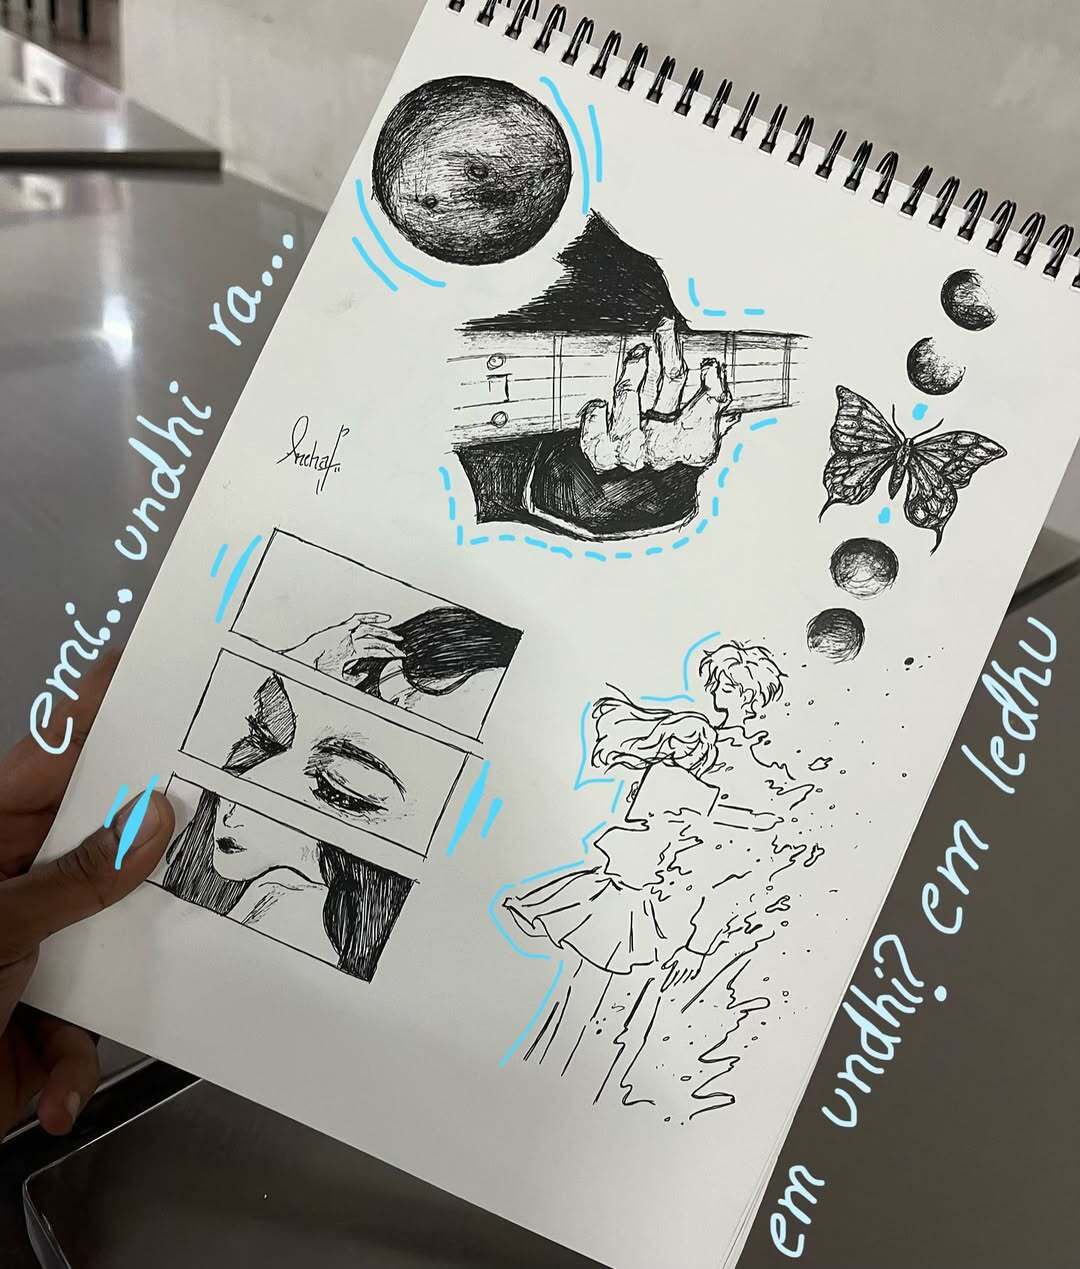 emi... undhi ra...
em undhi? em ledhu